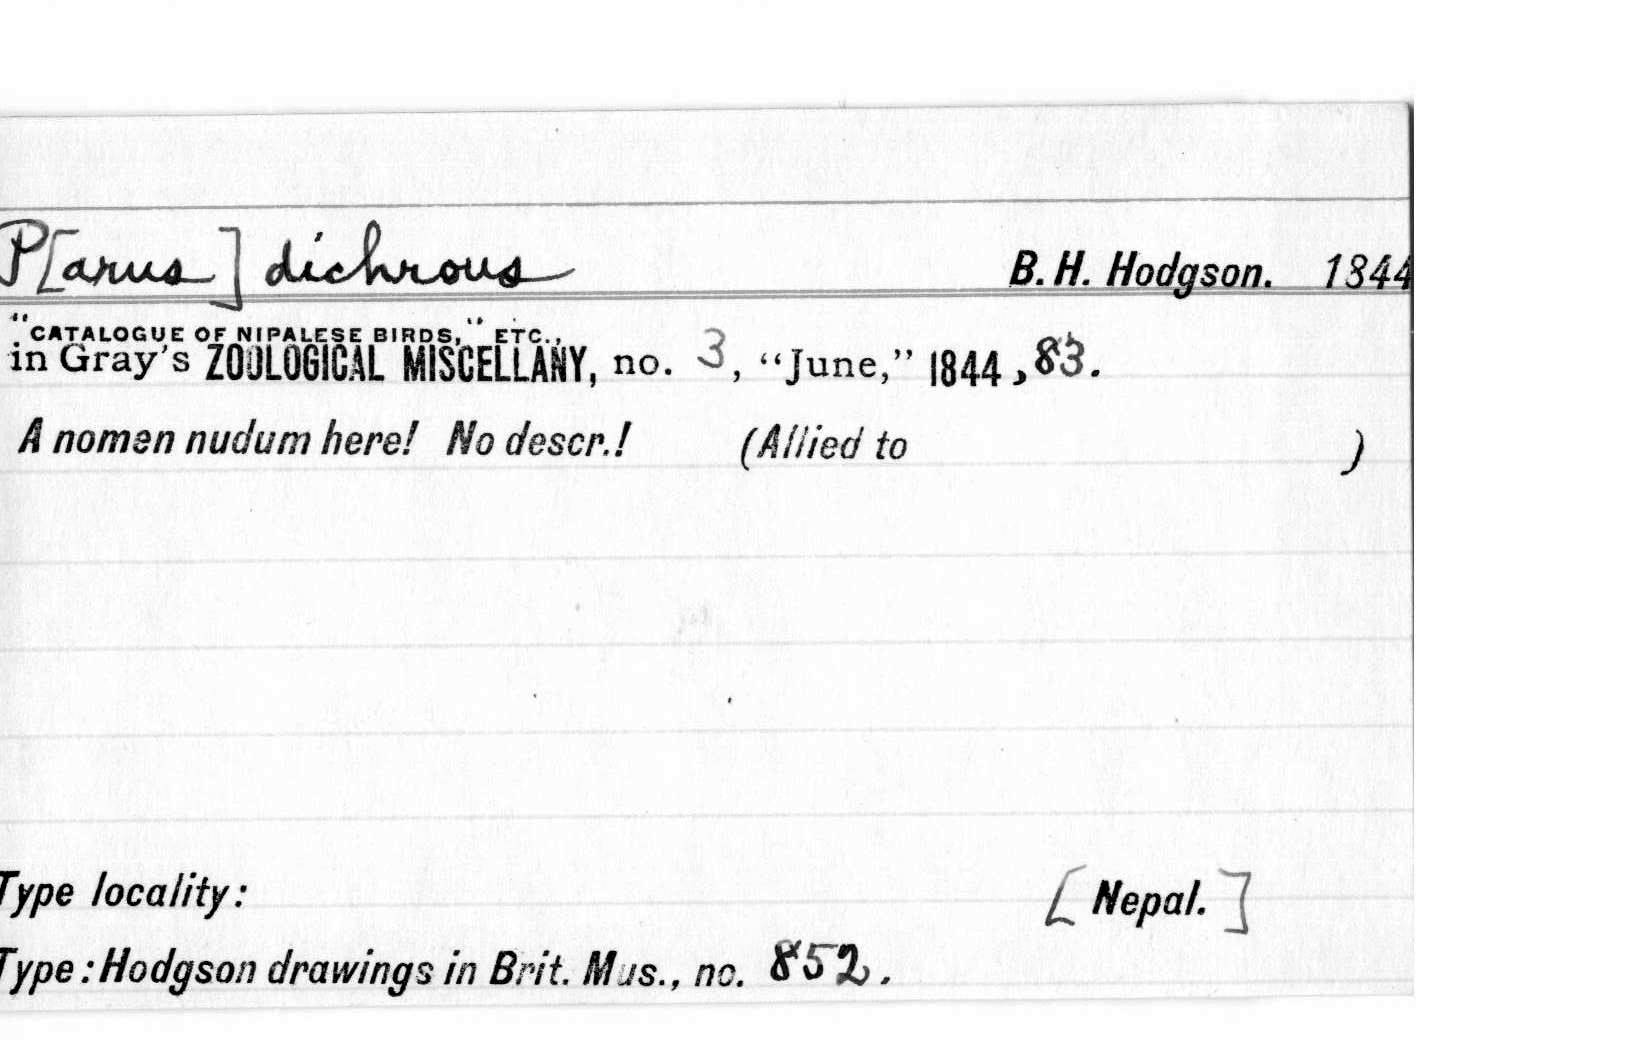 P[arus] dichrous B. H. Hodgson. 1844
"CATALOGUE OF NIPALESE BIRDS," ETC.,
in Gray's ZOOLOGICAL MISCELLANY, no. 3, "June," 1844, 83.
A nomen nudum here! No descr.! (Allied to )
Type locality: [Nepal.]
Type: Hodgson drawings in Brit. Mus., no. 852.